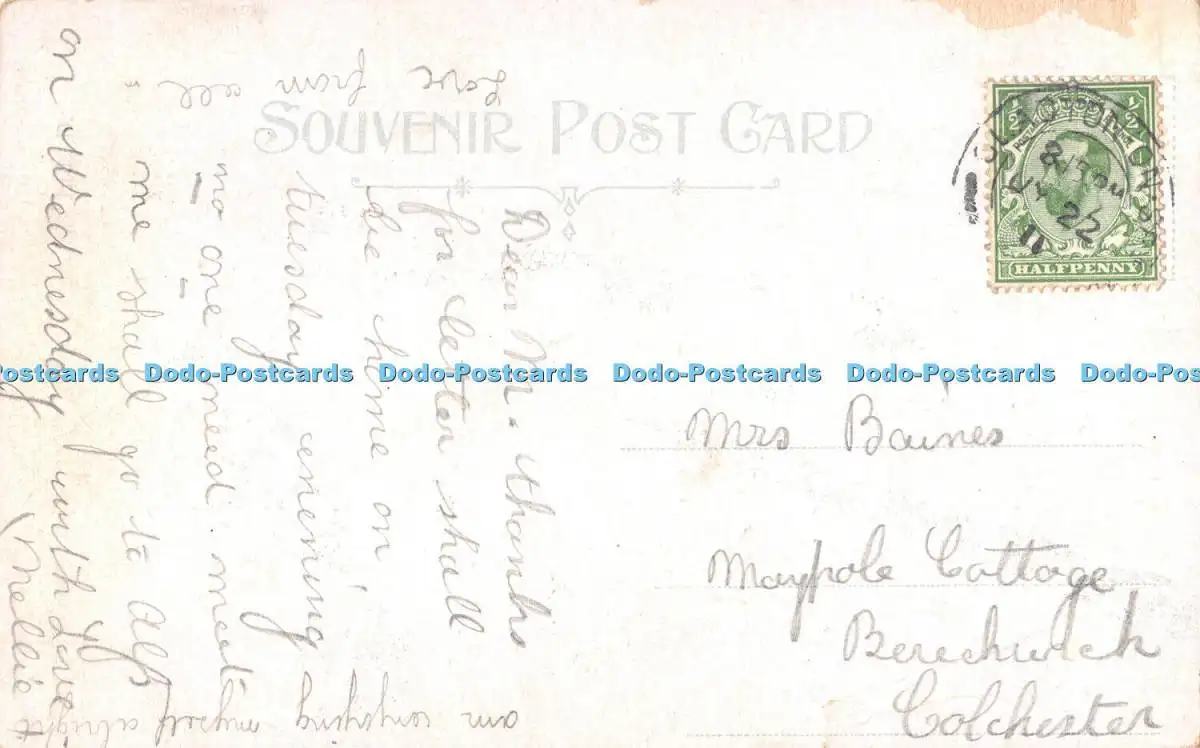 SOUVENIR POST CARD
Dear M. thanks
for letter shall
be home on,
tuesday evening
no one need meet
me shall go to Alf
on Wednesday with Love
Nellie
am enjoying myself alright
Love from all
½ ½
HALFPENNY
22
11
Mrs Baines
Maypole Cottage
Berechurch
Colchester
Postcards Dodo-Postcards Dodo-Postcards Dodo-Postcards Dodo-Postcards Dodo-Postc